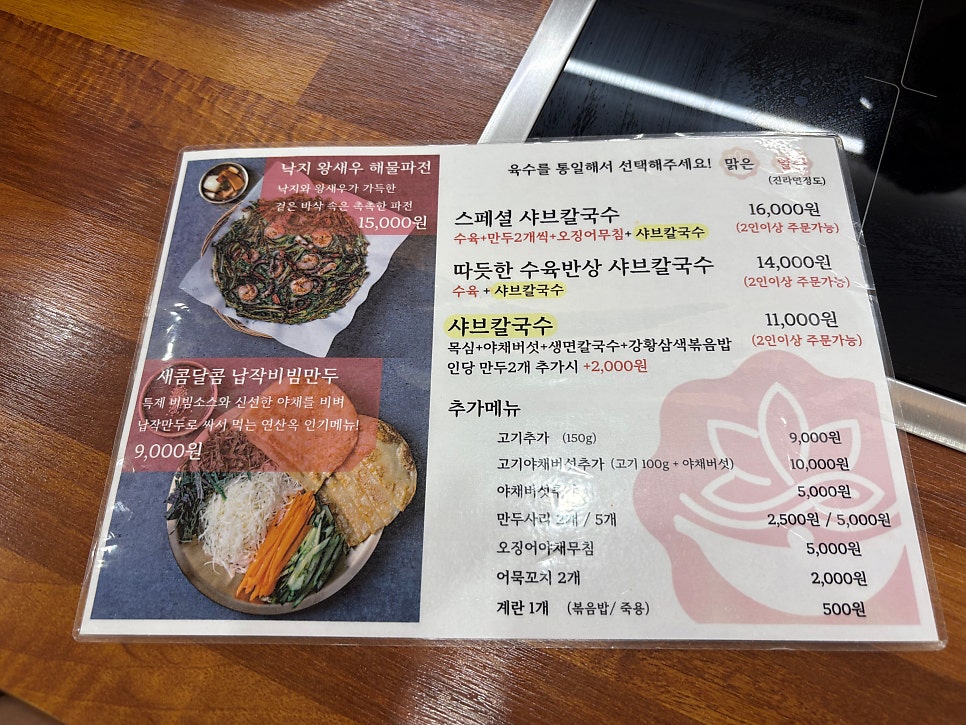 낙지 왕새우 해물파전
낙지와 왕새우가 가득한
겉은 바삭 속은 촉촉한 파전
15,000원
새콤달콤 납작비빔만두
특제 비빔소스와 신선한 야채를 비벼
납작만두로 싸서 먹는 연산옥 인기메뉴!
9,000원
육수를 통일해서 선택해주세요! 맑은
(진라면정도)
스페셜 샤브칼국수 16,000원
수육+만두2개씩+오징어무침+ 샤브칼국수 (2인이상 주문가능)
따듯한 수육반상 샤브칼국수 14,000원
수육 + 샤브칼국수 (2인이상 주문가능)
샤브칼국수 11,000원
목심+야채버섯+생면칼국수+강황삼색볶음밥 (2인이상 주문가능)
인당 만두2개 추가시 +2,000원
추가메뉴
고기추가 (150g) 9,000원
고기야채버섯추가 (고기 100g + 야채버섯) 10,000원
야채버섯 5,000원
만두사리 2개 / 5개 2,500원 / 5,000원
오징어야채무침 5,000원
어묵꼬치 2개 2,000원
계란 1개 (볶음밥/ 죽용) 500원